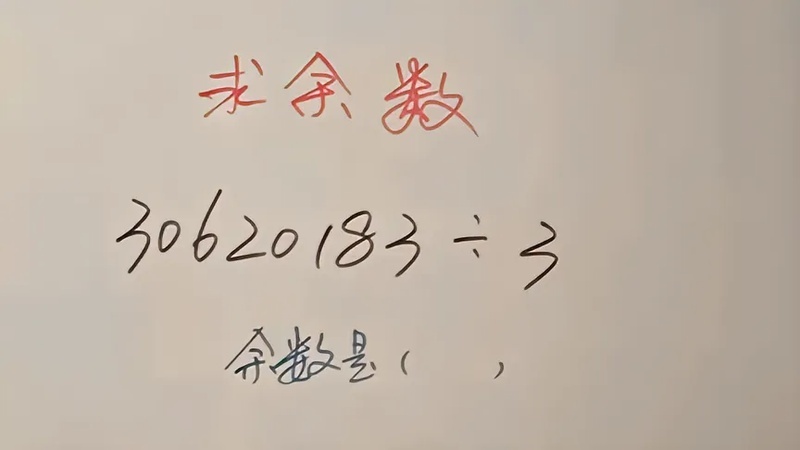 求余数
30620183÷3
余数是（ ）